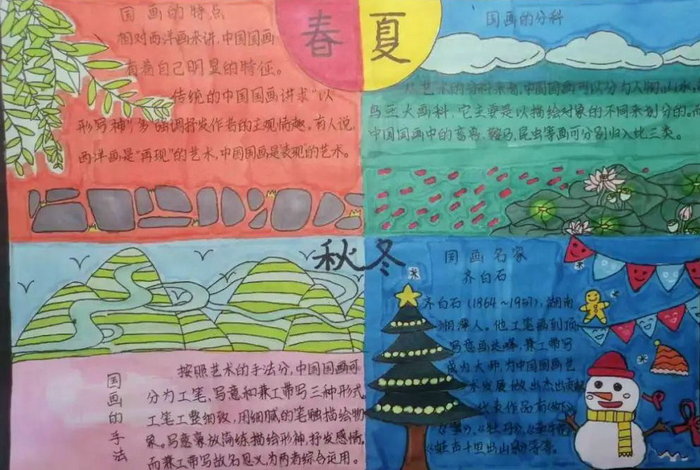 春夏
秋冬
国画的特点
相对西洋画来讲,中国国画
有着自己明显的特征。
传统的中国国画讲求"以
形写神",多强调抒发作者的主观情趣。有人说,
西洋画是"再现"的艺术,中国国画是表现的艺术。
国画的分科
从艺术的分科来看,中国国画可以分为人物、山水、
鸟三大画科,它主要是以描绘对象的不同来划分的。
中国国画中的畜兽、鞍马、昆虫等画可分别归入此三类。
国画的手法
按照艺术的手法分,中国国画可
分为工笔、写意和兼工带写三种形式
工笔工整细致,用细腻的笔触描绘物
象。写意豪放简练描绘形神,抒发感情。
而兼工带写故名思义,为两者综合运用。
国画名家
齐白石
齐白石(1864~1957),湖南
湘潭人。他工笔画到顶
写意画是峰,兼工带写
成为大师,为中国国画艺
术发展做出杰出贡献
代表作品有
虾》、《牡丹》、
《蛙声十里出山泉》等等。